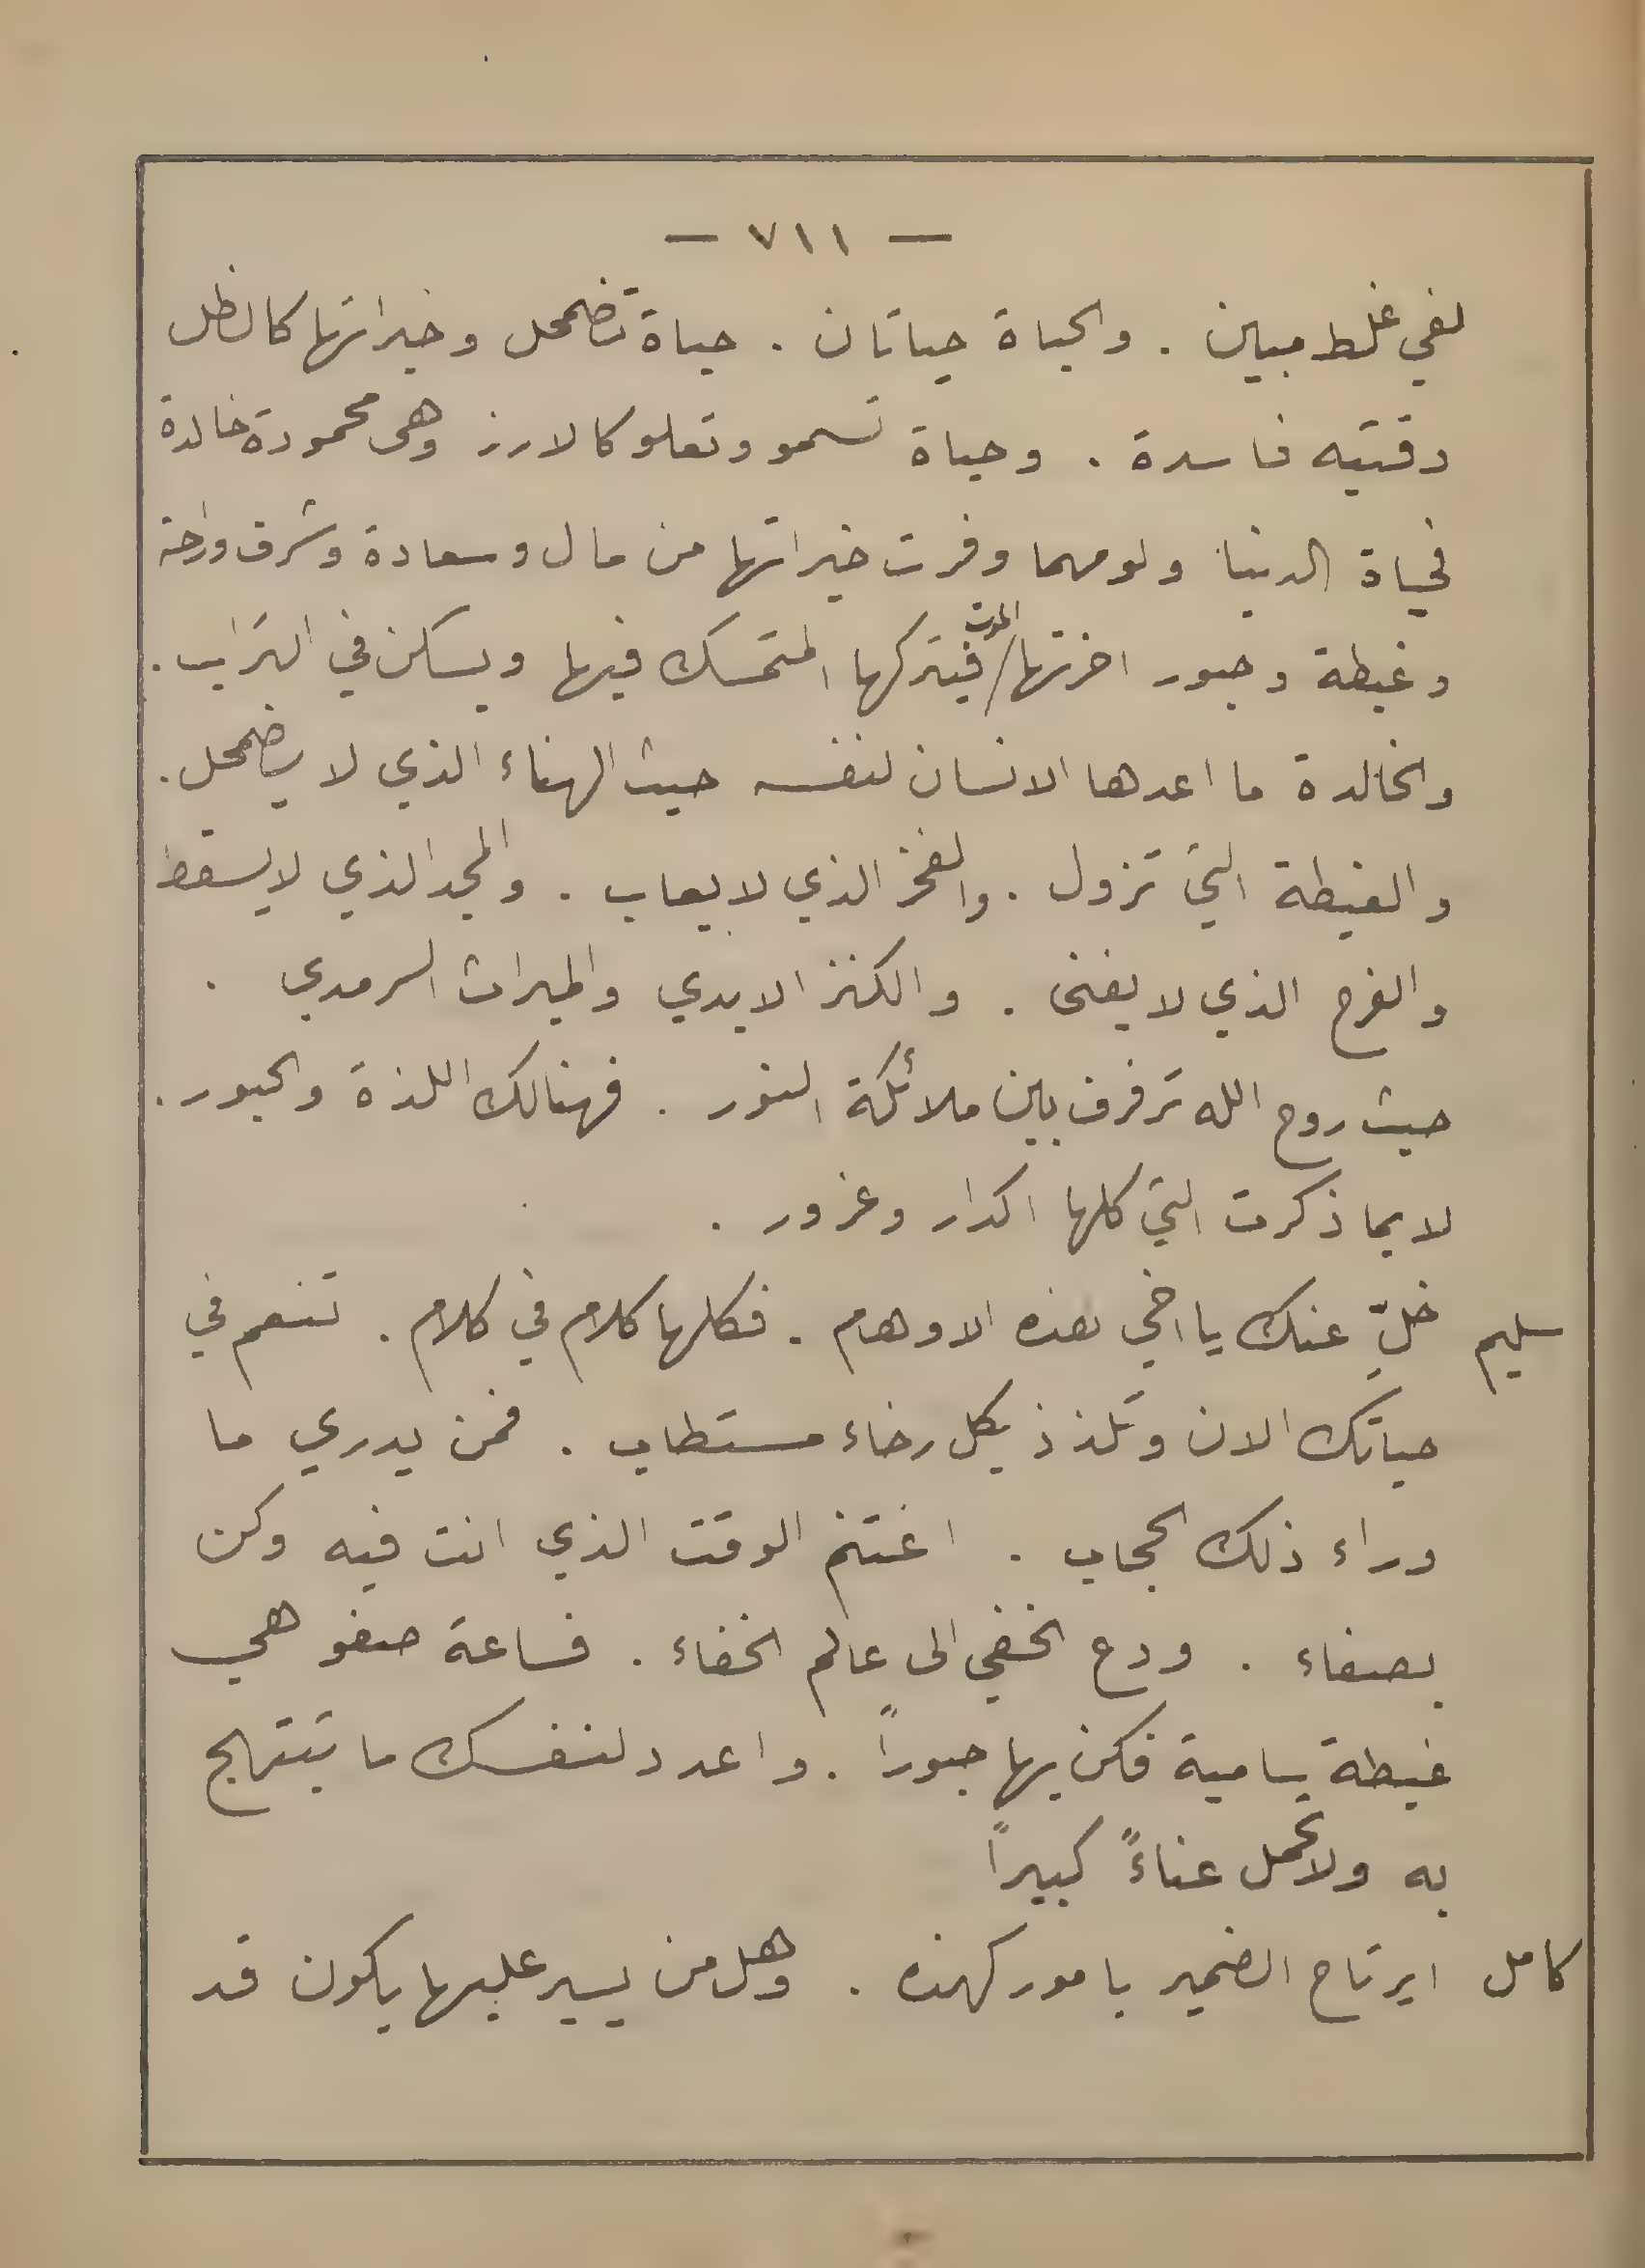 — ٧١١ —
لفي غلط مبين . والحياة حياتان . حياة تضمحل وخيراتها كالظل
وقتيه فاسدة . وحياة تسمو وتعلو كالارز وهى محمودة خالدة
فحياة الدنيا ولو مهما وفرت خيراتها من مال وسعادة وشرف وراحة
وغبطة وحبور اخرتها / الموت فيتركها المتمسك فيها ويسكن في التراب .
والخالدة ما اعدها الانسان لنفسه حيث الهناء الذي لا يضمحل .
والغبطة التي تزول . والفخر الذي لا يعاب . والمجد الذي لا يسقط
والفرح الذي لا يفنى . والكنز الابدي والميراث السرمدي .
حيث روح الله ترفرف بين ملائكة النور . فهنالك اللذة والحبور .
لا بما ذكرت التي كلها اكدار وغرور .
سليم خلِّ عنك يا اخي هذه الاوهام . فكلها كلام في كلام . تنعم في
حياتك الان وتلذذ بكل رخاء مستطاب . فمن يدري ما
وراء ذلك الحجاب . اغتنم الوقت الذي انت فيه وكن
بصفاء . ودع الخفي الى عالم الخفاء . فساعة صفو هي
غبطة سامية فكن بها حبوراً . واعدد لنفسك ما تبتهج
به ولا تحمل عناءً كبيراً
كامل ايرتاح الضمير بامور كهذه . وهل من يسير عليها يكون قد